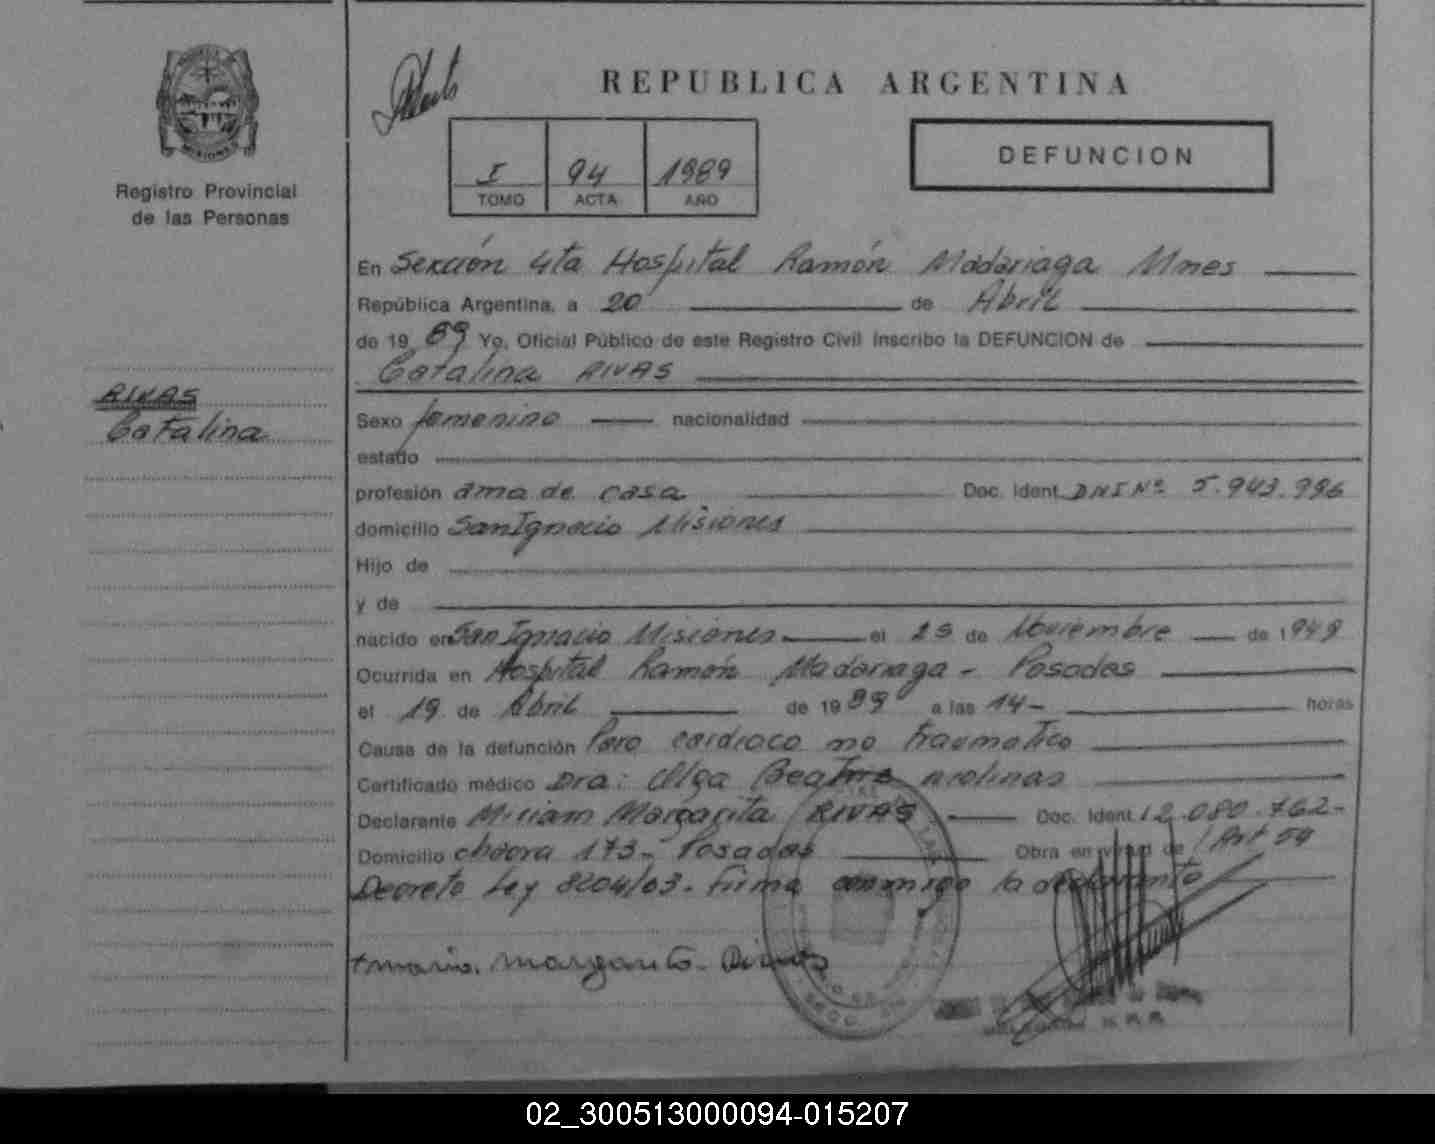 MISIONES
Registro Provincial
de las Personas
RIVAS
Catalina
REPUBLICA ARGENTINA
I 94 1989
TOMO ACTA AÑO
DEFUNCION
En Sección 4ta Hospital Ramón Madariaga Mnes
República Argentina, a 20 de Abril
de 19 89 Yo, Oficial Público de este Registro Civil inscribo la DEFUNCION de
Catalina RIVAS
Sexo femenino nacionalidad
estado
profesión ama de casa Doc. Ident. DNI Nº 5.943.996
domicilio San Ignacio Misiones
Hijo de
y de
nacido en San Ignacio Misiones el 25 de Noviembre de 1949
Ocurrida en Hospital Ramón Madariaga - Posadas
el 19 de Abril de 19 89 a las 14- horas
Causa de la defunción Paro cardiaco no traumatico
Certificado médico Dra: Olga Beatriz Molinas
Declarante Miriam Margarita RIVAS Doc. Ident. 12.080.762-
Domicilio 173- Posadas Obra en virtud de Art 59
Decreto Ley 8204/63. Firma conmigo la declarante
margarita Rivas
02_300513000094-015207